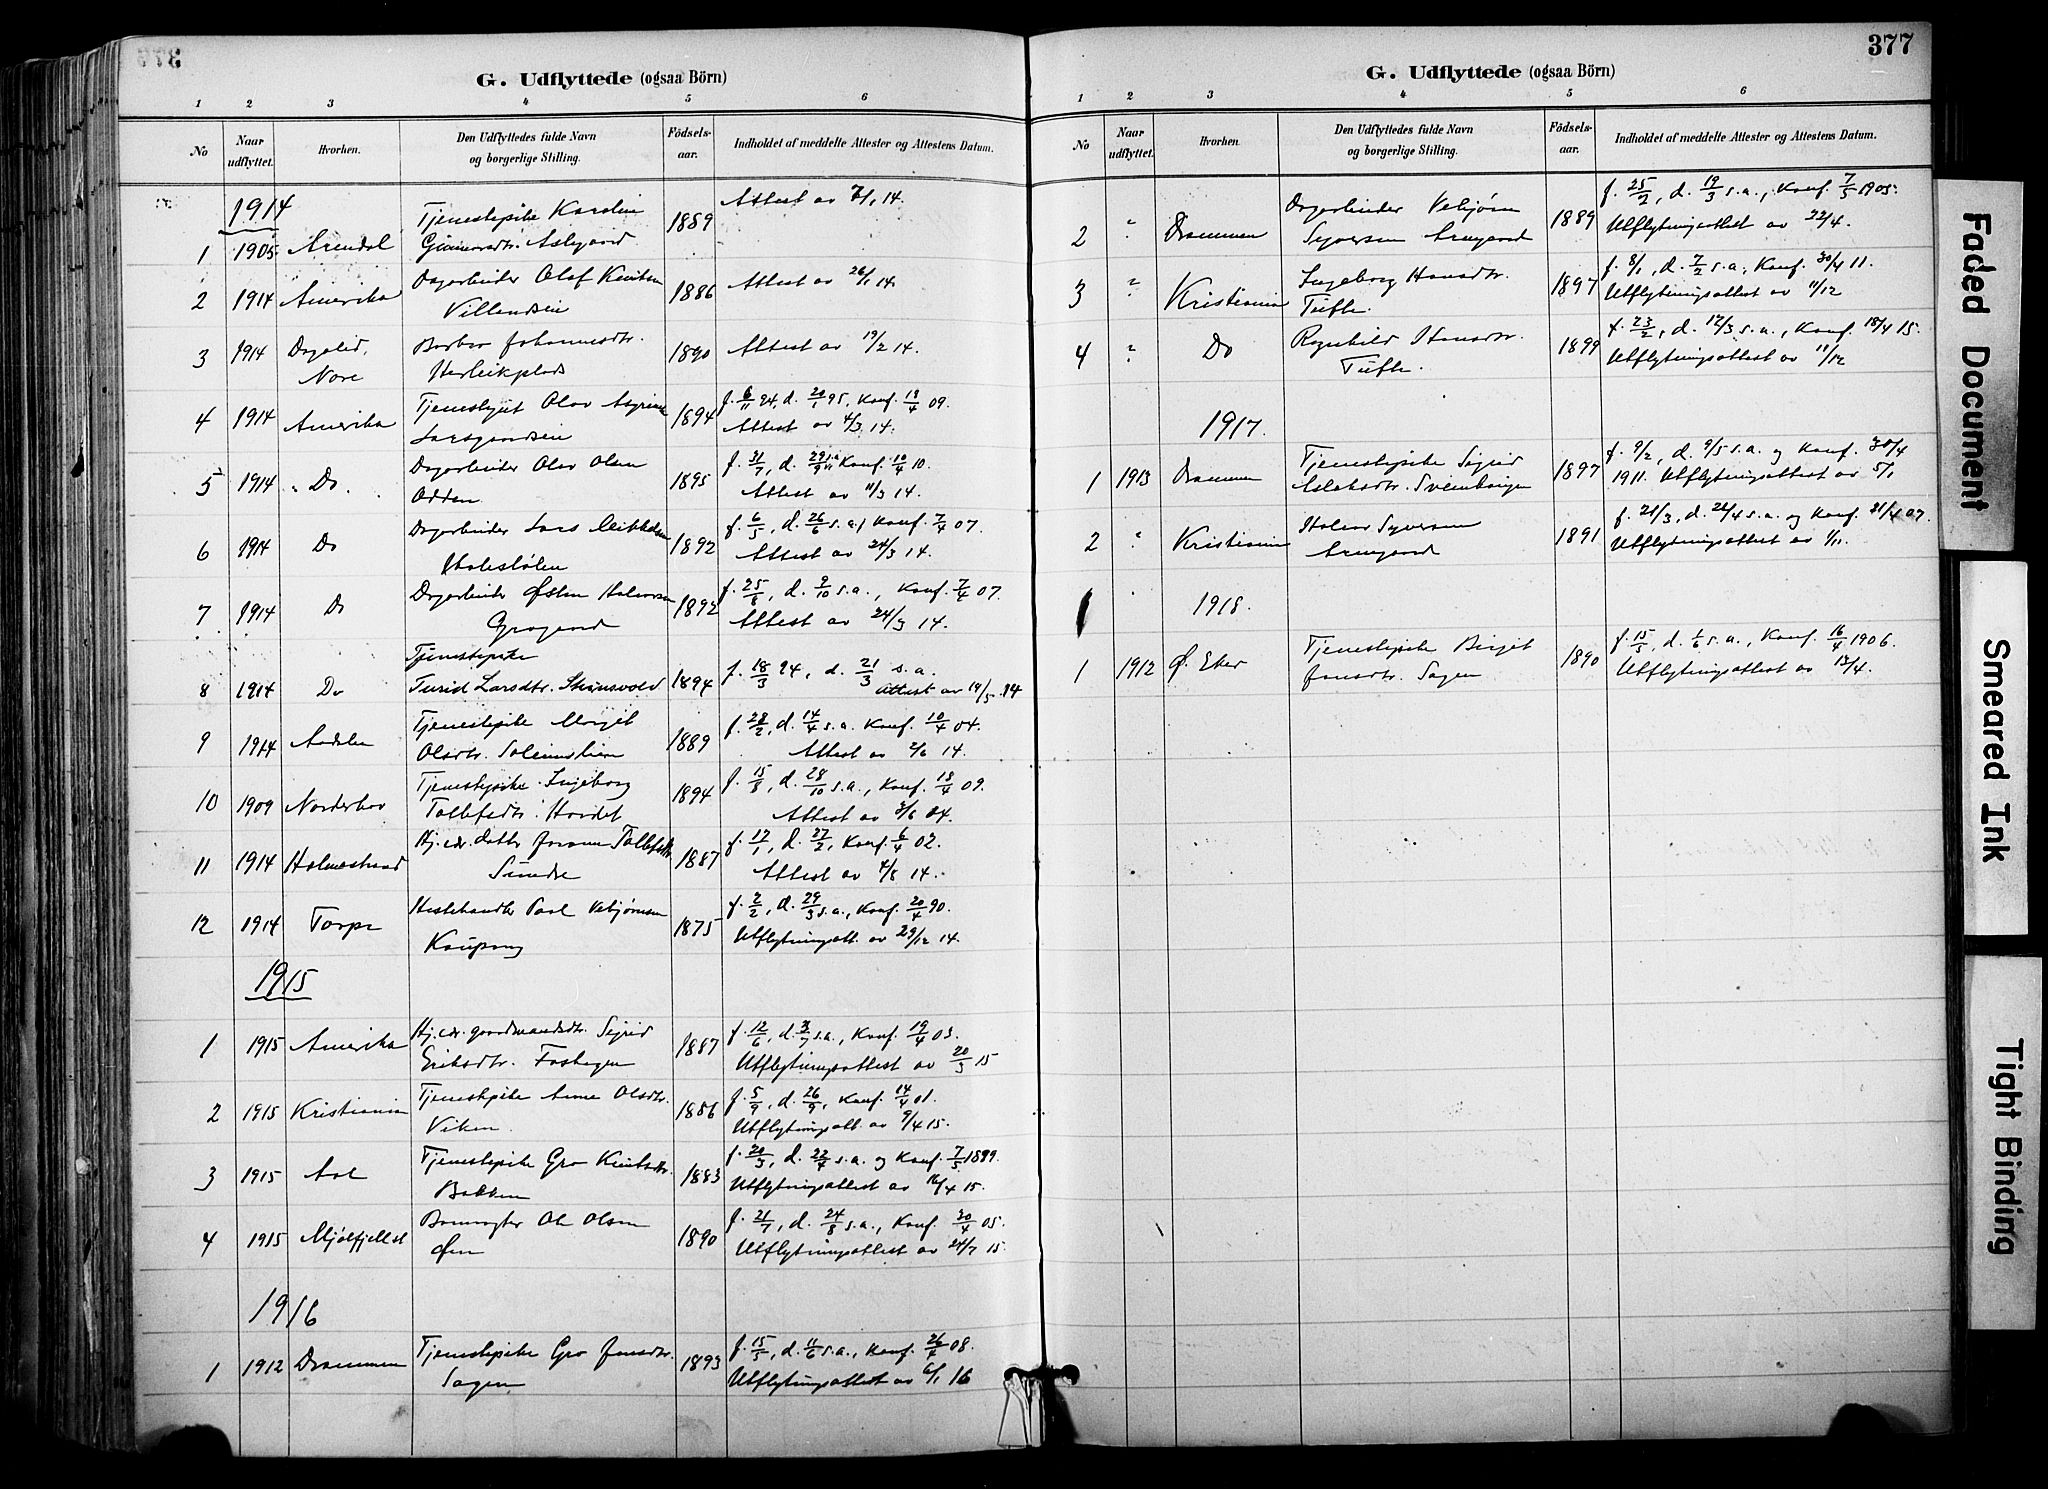 G. Udflyttede (ogsaa Börn)
1 2 3 4 5 6
No
Naar udflyttet.
Hvorhen.
Den Udflyttedes fulde Navn og borgerlige Stilling.
Födselsaar.
Indholdet af meddelte Attester og Attestens Datum.
1914
1 1905 Arendal Tjenestepike Karolin Gunnersdtr. 1889 Attest av 7/1 14.
2 1914 Amerika Dagarbeider Olaf Knutsen Villandseie 1886 Attest av 26/1 14.
3 1914 Dagalid, Nore Barbro Johannesdtr. Herleikplads 1890 Attest av 19/2 14.
4 1914 Amerika Tjenestegut Olav 1894 f. 6/11 94, d. 20/1 95, Konf. 18/4 09.
Attest av 4/3 14.
5 1914 " Do. Dagarbeider Olav Olsen Odden 1895 f. 31/7, d. 29/9 s.a. Konf. 10/4 10.
Attest av 11/3 14.
6 1914 Do Dagarbeider Lars 1892 f. 6/5, d. 26/6 s.a., Konf. 7/4 07.
Attest av 24/3 14.
7 1914 Do Dagarbeider Østen Halvorsen Grøgaard 1892 f. 25/8, d. 9/10 s.a., Konf. 7/4 07.
Attest av 24/3 14.
8 1914 Do Tjenestepike Turid Larsdtr. Strønsvold 1894 f. 18/3 94, d. 21/3 s.a.
Attest av 19/5 14
9 1914 Aadalen Tjenestepike Margit Olsdtr. 1889 f. 28/2, d. 14/4 s.a. Konf. 10/4 04.
Attest av 2/6 14.
10 1909 Norderhov Tjenestepike Ingeborg Tollefsdtr. Hovdet 1894 f. 15/8, d. 28/10 s.a., Konf. 18/4 09.
Attest av 3/6 04.
11 1914 Holmestrand Hj.vær. datter Jorann Tollefsdtr. Sundre 1887 f. 17/1, d. 27/2, Konf. 6/4 02.
Attest av 4/8 14.
12 1914 Torpe Hestehandler Paal Vebjørnsen Kaupang 1875 f. 2/2, d. 29/3 s.a., Konf. 20/4 90.
Utflytningsatt. av 29/12 14.
1915
1 1915 Amerika Hj.vær. gaardmandsdtr. Sigrid Eriksdtr. Foshagen 1887 f. 12/6, d. 3/7 s.a., Konf. 19/4 03.
Utflytningsattest av 20/3 15
2 1915 Kristiania Tjenestepike Anne Olsdtr. Viken. 1886 f. 5/9, d. 26/9, Konf. 14/4 01.
Utflytningsatt. av 9/4 15.
3 1915 Aal Tjenestepike Gro Knutsdtr. Bakken 1883 f. 20/3, d. 22/4 s.a. og Konf. 7/5 1899.
Utflytningsattest av 16/4 15.
4 1915 Mjølfjellet Banevogter Ole Olsen Øen 1890 f. 21/7, d. 24/8 s.a., Konf. 30/4 05.
Utflytningsattest av 24/7 15.
1916
1 1912 Drammen Tjenestepike Gro Jonsdtr. Sagen 1893 f. 15/5, d. 11/6 s.a., Konf. 26/4 08.
Utflytningsattest av 6/1 16
377
G. Udflyttede (ogsaa Börn)
1 2 3 4 5 6
No
Naar udflyttet.
Hvorhen.
Den Udflyttedes fulde Navn og borgerlige Stilling.
Födselsaar.
Indholdet af meddelte Attester og Attestens Datum.
2 " Drammen Dagarbeider Vebjørn Syversen Arnegaard 1889 f. 25/2, d. 19/3 s.a., Konf. 7/5 1905.
Utflytningsattest av 22/4.
3 " Kristiania Ingeborg Hansdtr. Tufte. 1897 f. 8/1, d. 7/2 s.a., Konf. 30/4 11.
Utflytningsattest av 11/12
4 " Do Ragnhild Hansdtr. Tufte. 1899 f. 23/2, d. 12/3 s.a., Konf. 18/4 15.
Utflytningsattest av 11/12
1917.
1 1913 Drammen Tjenestepike Sigrid Aslaksdtr. Sveinhaugen 1897 f. 9/2, d. 9/5 s.a. og Konf. 30/4 1911. Utflytningsattest av 5/1
2 " Kristiania Halvor Syversen Arnegaard 1891 f. 21/3, d. 26/4 s.a. og Konf. 21/4 07.
Utflytningsattest av 1/11.
1918.
1 1912 Ø. Eker Tjenestepike Birgit Jonsdtr. Sagen 1890 f. 15/5, d. 1/6 s.a., Konf. 16/4 1906.
Utflytningsattest av 13/4.
Faded Document
Smeared Ink
Tight Binding